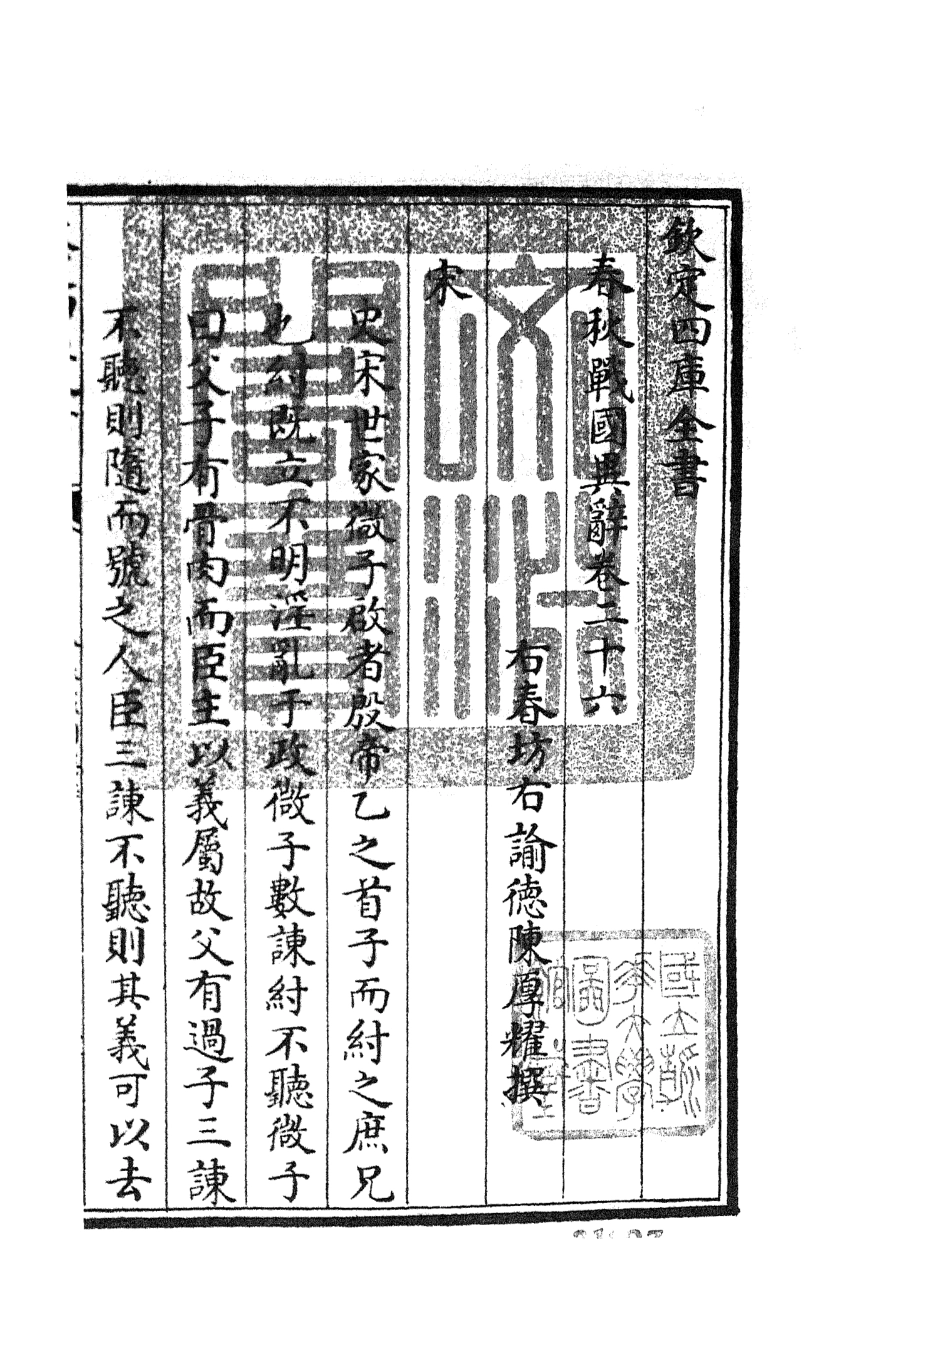 欽定四庫全書
春秋戰國異辭卷三十六
右春坊右諭德陳厚耀撰
宋
史宋世家微子啟者殷帝乙之首子而紂之庶兄
也紂既立不明淫亂于政微子數諫紂不聽微子
曰父子有骨肉而臣主以義屬故父有過子三諫
不聽則隨而號之人臣三諫不聽則其義可以去
文淵閣寶